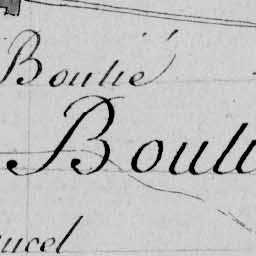 Boutié
Bouli
ucel